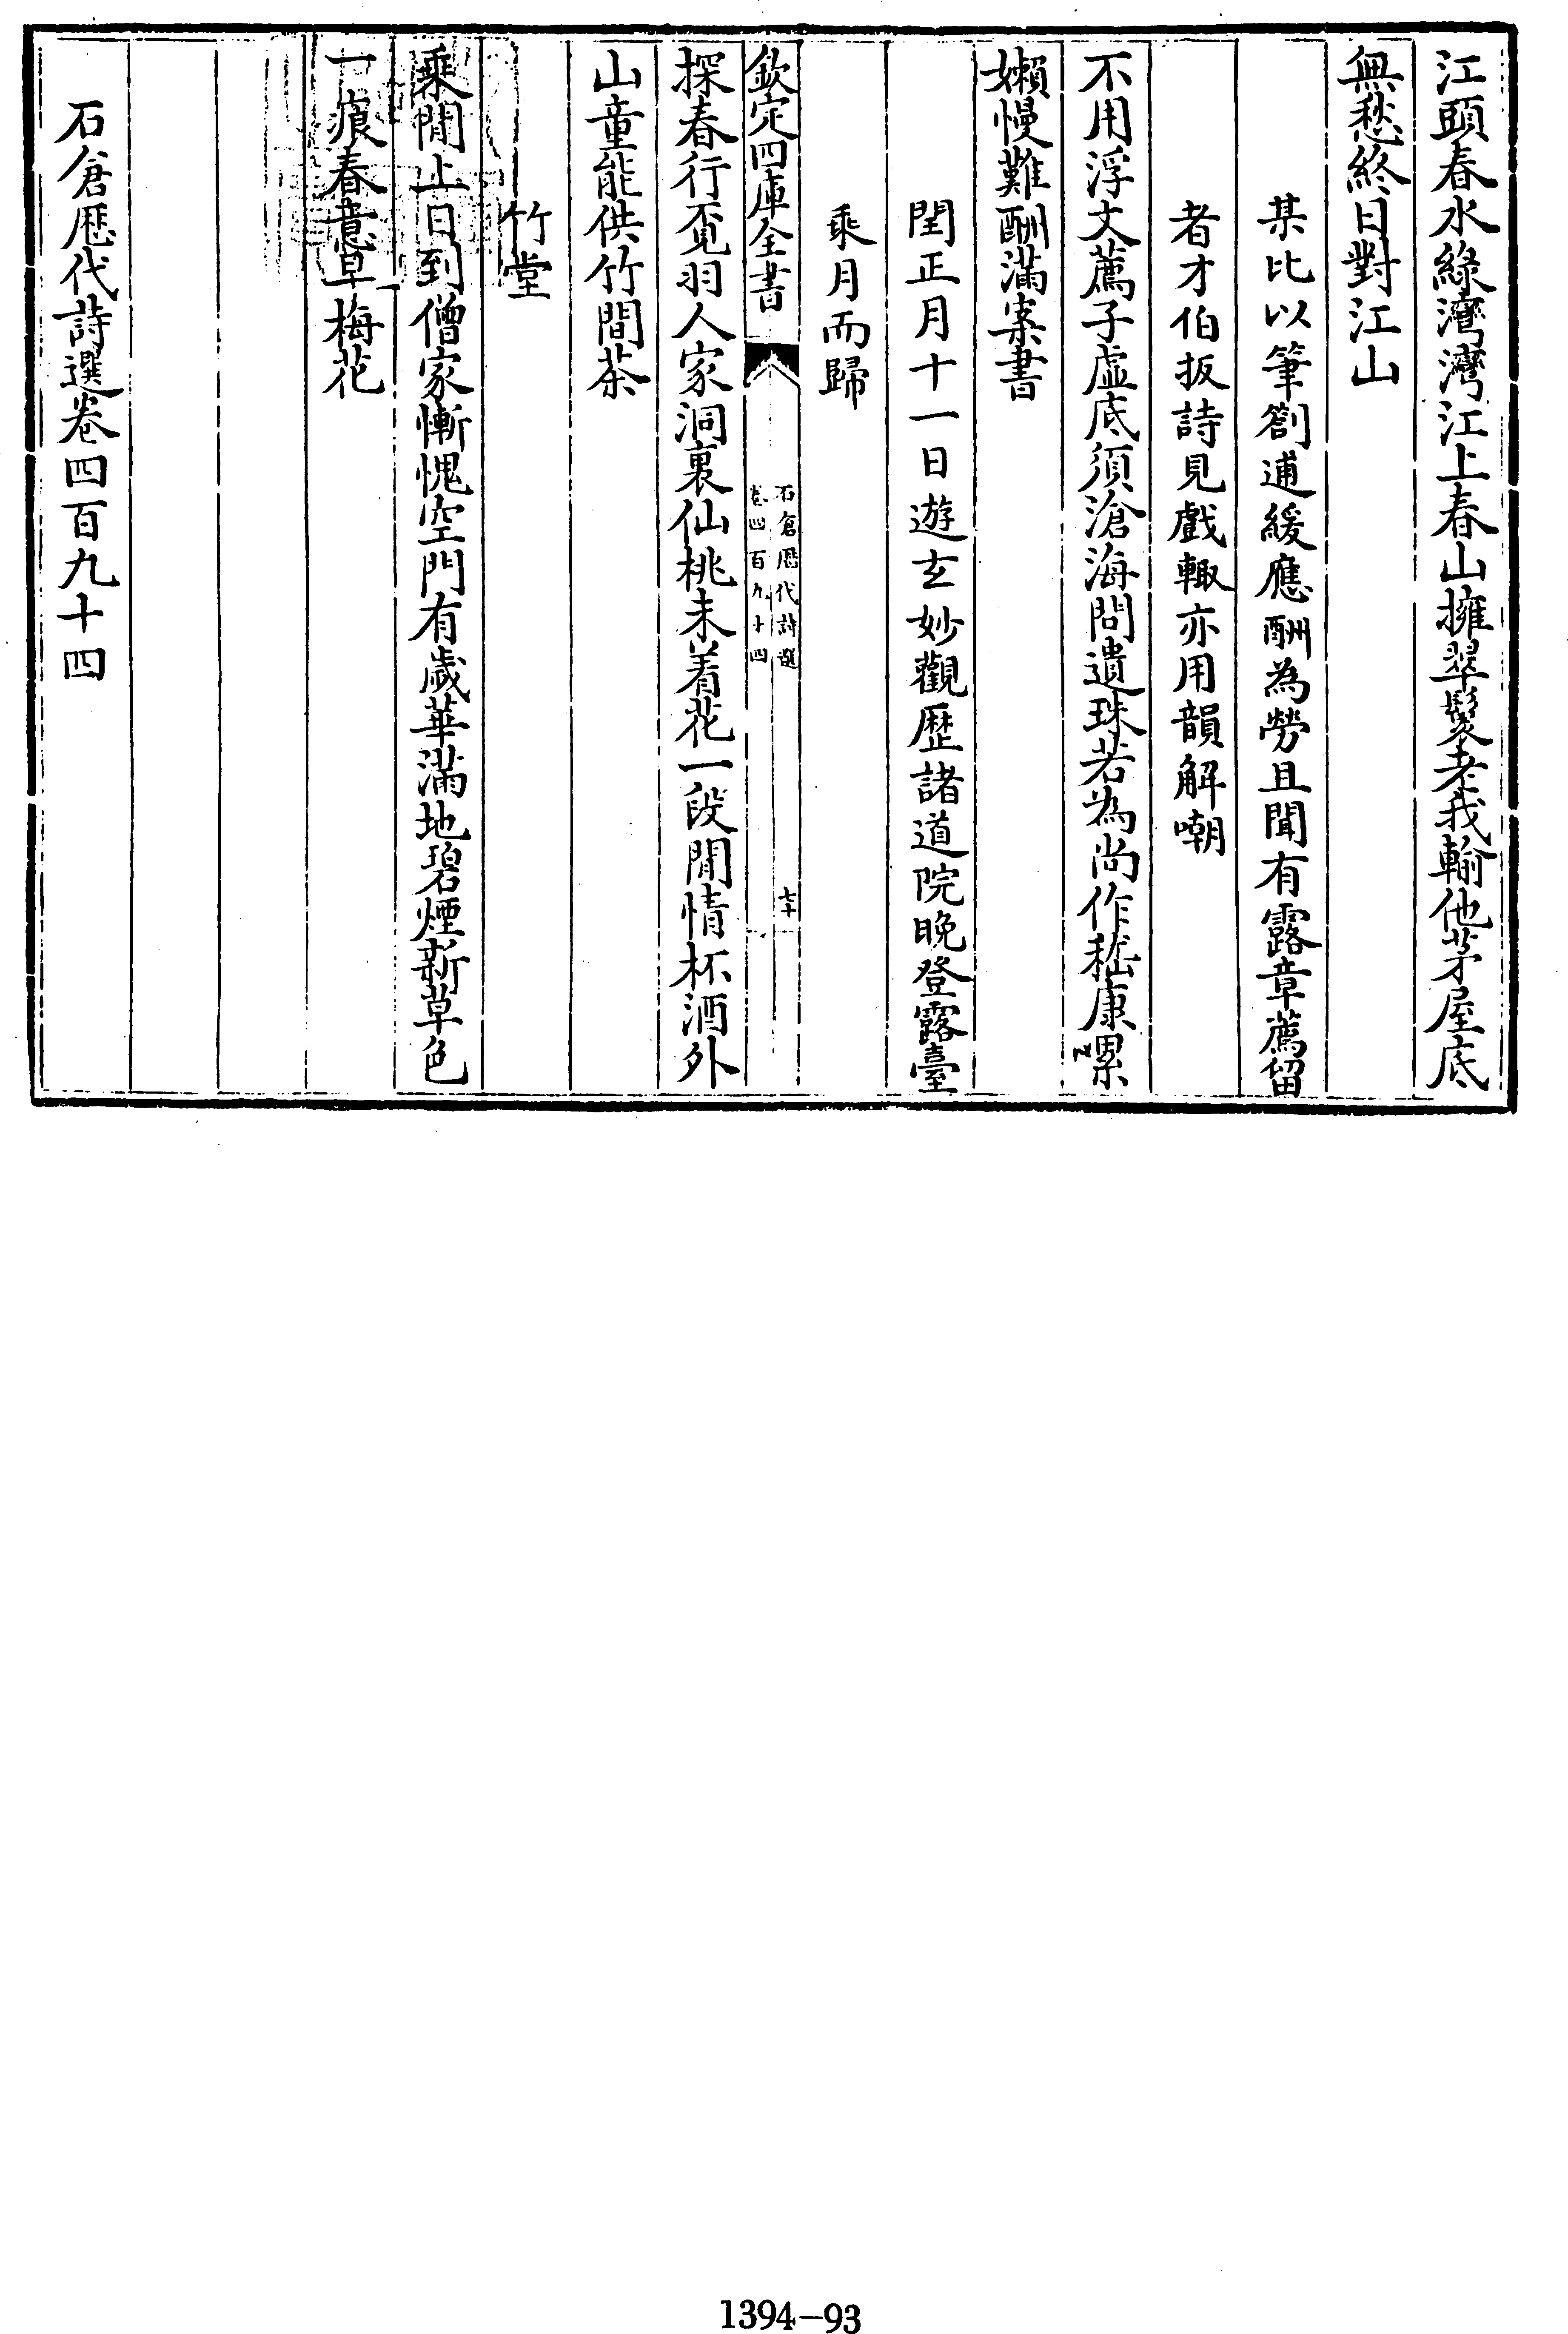 江頭春水綠灣灣江上春山擁翠鬟老我輸他茅屋底
無愁終日對江山
某比以筆劄逋緩應酬為勞且聞有露章薦留
者才伯扳詩見戲輙亦用韻解嘲
不用浮文薦子虛底須滄海問遺珠若為尚作嵇康累
嬾慢難酬滿案書
閏正月十一日遊玄妙觀歷諸道院晚登露臺
乘月而歸
欽定四庫全書
石倉歷代詩選
卷四百九十四
七十
探春行覔羽人家洞裏仙桃未着花一段閒情杯酒外
山童能供竹間茶
竹堂
乘閒上日到僧家慚愧空門有歲華滿地碧煙新草色
一痕春意早梅花
石倉歷代詩選卷四百九十四
1394-93